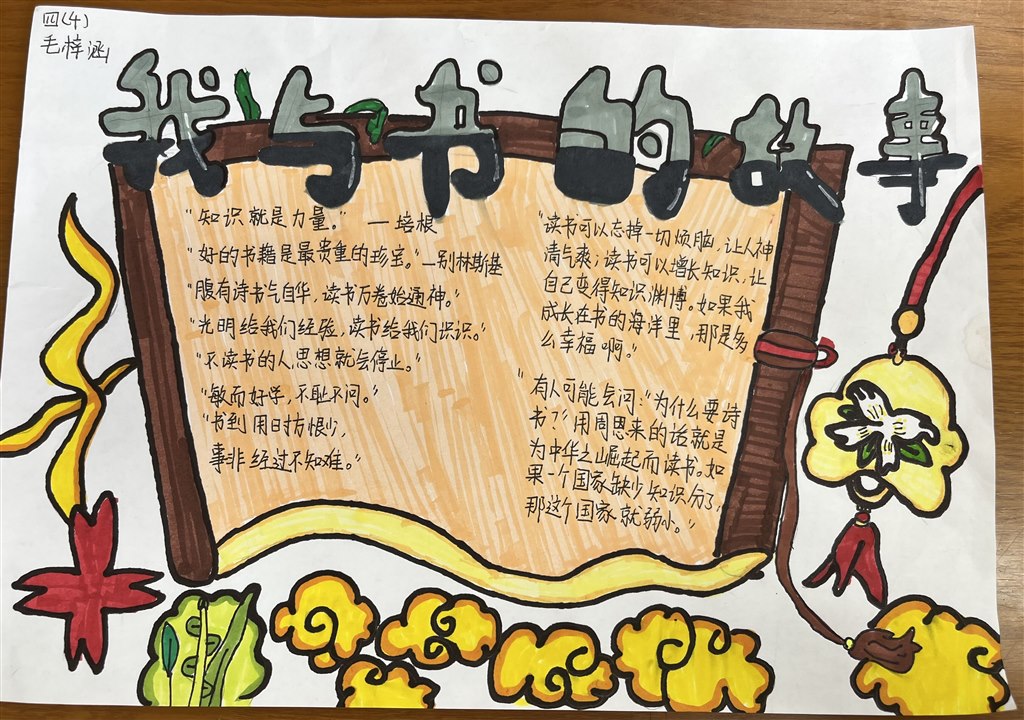 四(4)
毛梓涵
我与书的故事
“知识就是力量。” —培根
“好的书籍是最贵重的珍宝。”—别林斯基
“腹有诗书气自华，读书万卷始通神。”
“光明给我们经验，读书给我们识识。”
“不读书的人，思想就会停止。”
“敏而好学，不耻不问。”
“书到用时方恨少，
事非经过不知难。”
“读书可以忘掉一切烦脑，让人神
清气爽；读书可以增长知识，让
自己变得知识渊博。如果我
成长在书的海洋里，那是多
么幸福啊。”
“有人可能会问：“为什么要诗
书？”用周恩来的话就是
为中华之山崛起而读书。如
果一个国家缺少知识分了，
那这个国家就弱小。”